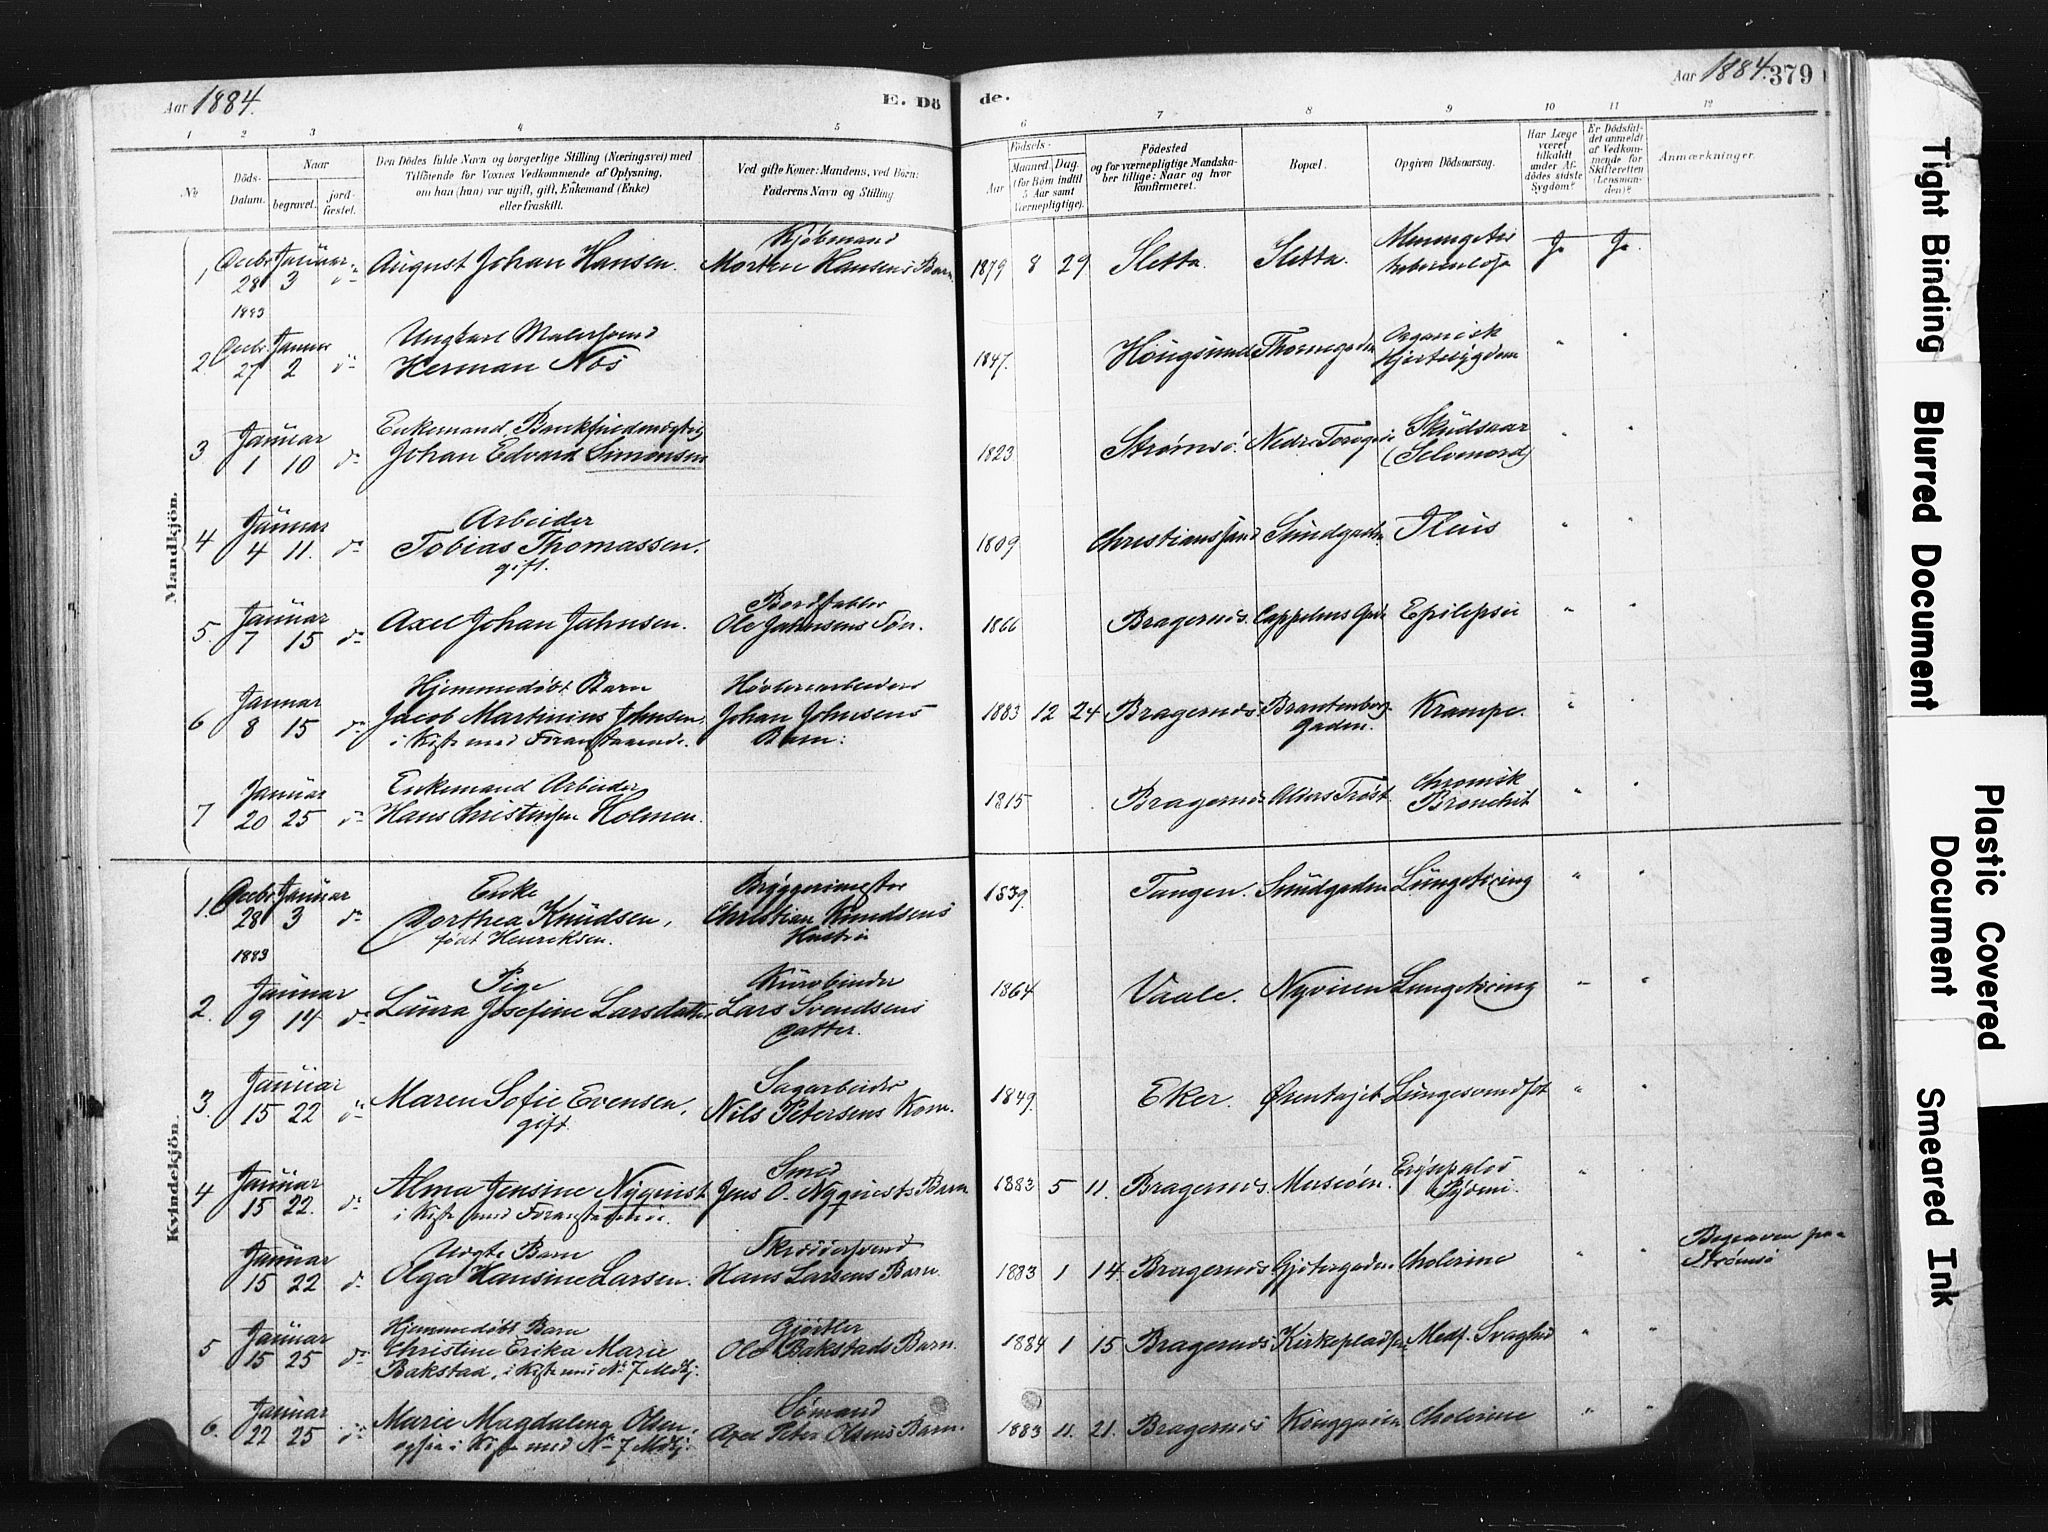 Aar 1884.
E. Dö
de.
Aar 1884. 379
1 2 3 4 5 6 7 8 9 10 11 12
No
Döds-
Datum.
Naar
begravet.
jord-
fæstet.
Den Dödes fulde Navn og borgerlige Stilling (Næringsvei) med
Tilföiende for Voxnes Vedkommende af Oplysning,
om han (hun) var ugift, gift, Enkemand (Enke)
eller fraskilt.
Ved gifte Koner: Mandens, ved Börn:
Faderens Navn og Stilling
Födsels-
Aar
Maaned. Dag.
(for Börn indtil
5 Aar samt
Værnepligtige).
Födested
og for værnepligtige Mandska-
ber tillige: Naar og hvor
konfirmeret.
Bopæl.
Opgiven Dödsaarsag.
Har Læge
været
tilkaldt
under Af-
dödes sidste
Sygdom?
Er Dödsfal-
det anmeldt
af Vedkom-
mende for
Skifteretten
(Lensman-
den)?
Anmærkninger.
Mandkjön.
Kjøbmand
1 Decbr 28 1883 Januar 3 do August Johan Hansen. Morten Hansens Barn. 1879 8 29 Sletta. Sletta. Ja Ja
Ungkarl Malersvend
2 Decbr. 27 Januar 2 do Herman Nøs 1847. Hougsund Organisk " "
3 Januar 1 10 do Enkemand
Johan Edvard Simonsen 1823 Strømsö. (Selvmord) " "
Arbeider
4 Januar 4 11. do Tobias Thomassen. 1809 Christianssand Sundgaden Ileus " "
gift.
5. Januar 7 15 do Axel Johan Jahnsen. Ole Jahnsens Søn. 1866 Bragernes. Cappelens Gade Epilepsie " "
Hjemmedøbt Barn
6 Januar 8 15 do Jacob Martinius Johnsen. Johan Johnsens 1883 12 24 Bragernes. Brantenborg- Krampe. " "
i Kiste med Foranstaaende. Barn: gaden.
Enkemand Arbeider Chronisk
7 Januar 20 25 do Hans Christensen Holmen. 1815 Bragernes Akers Trøst Bronchit " "
Kvindekjön.
Enke Bryggerimester
1. Decbr 28 1883 Januar 3 do Dorthea Knudsen, Christian Knudsens 1839. Tangen. Sundgaden Lungetæring " "
født Henriksen. Hustru
Pige Kurvbinder
2. Januar 9 14 do Laura Josefine Larsdatter Lars Svendsens 1864 Vaale. Nyveien Lungetæring " "
Datter.
Sagarbeider
3. Januar 15 22 do Maren Sofie Evensen, Nils Petersens Kone. 1849. Eker. " "
gift.
Smed
4 Januar 15 22. do Alma Jensine Nyqvist Jens O. Nyqvists Barn 1883 5 11. Bragernes Museöen. " "
i Kiste med Foranstaaende.
Uægte Barn Skræddersvend
Januar 15 22 do Olga Hansine Larsen. Hans Larsens Barn. 1883 1 14 Bragernes Cholerine " " Begraven paa
Strømsø
Hjemmedøbt Barn Gjørtler
5 Januar 15 25 do Christine Erika Marie Ole Bakstads Barn. 1884 1 15 Bragernes Kirkepladsen Medf. Svaghed " "
Bakstad, i Kiste med No 7 Mdkj.
Sømand
6. Januar 22 25 do Marie Magdalena Olsen Axel Peter Olsens Barn. 1883 11. 21. Bragernes Konggaden Cholerine " "
i Kiste med No 7 Mdkj.
Tight Binding
Blurred Document
Plastic Covered
Document
Smeared Ink